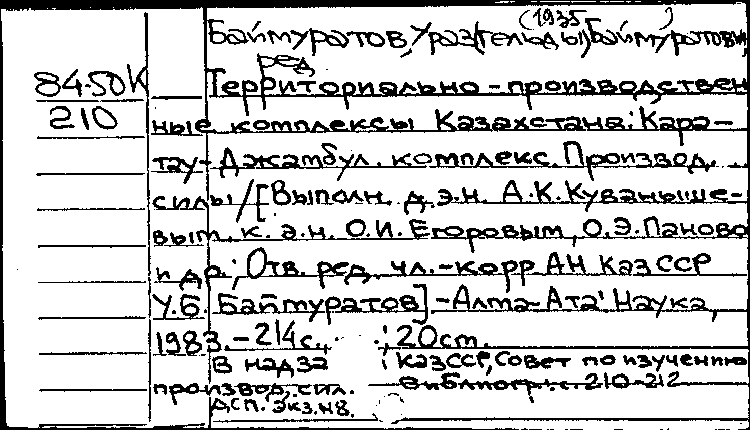 (1935 )
Баймуратов, Ураз(гельды) Баймуратович,
ред
84-50К Территориально-производствен
210 ные комплексы Казахстана: Кара-
тау-Джамбул. комплекс. Производ.
силы/[Выполн. д.э.н. А.К.Куваныше-
вым, к.э.н. О.И. Егоровым, О.Э.Паново
и др.; Отв. ред. чл.-корр АН КазССР
У.Б. Баймуратов].-Алма-Ата: Наука,
1983.-214с., ; 20см.
В надза КазССР, Совет по изучению
производ. сил. Библиогр.: с. 210-212
ДСП. Экз.№8.